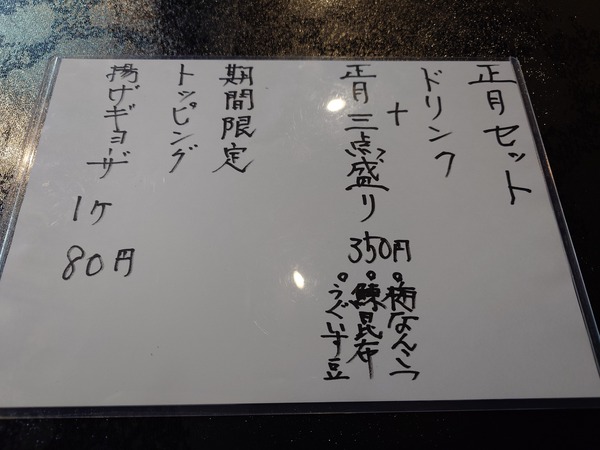 正月セット
ドリンク
+
正月三点盛り
350円
。梅なんこつ
。鰊昆布
。うぐいす豆
期間限定
トッピング
揚げギョーザ
1ケ
80円